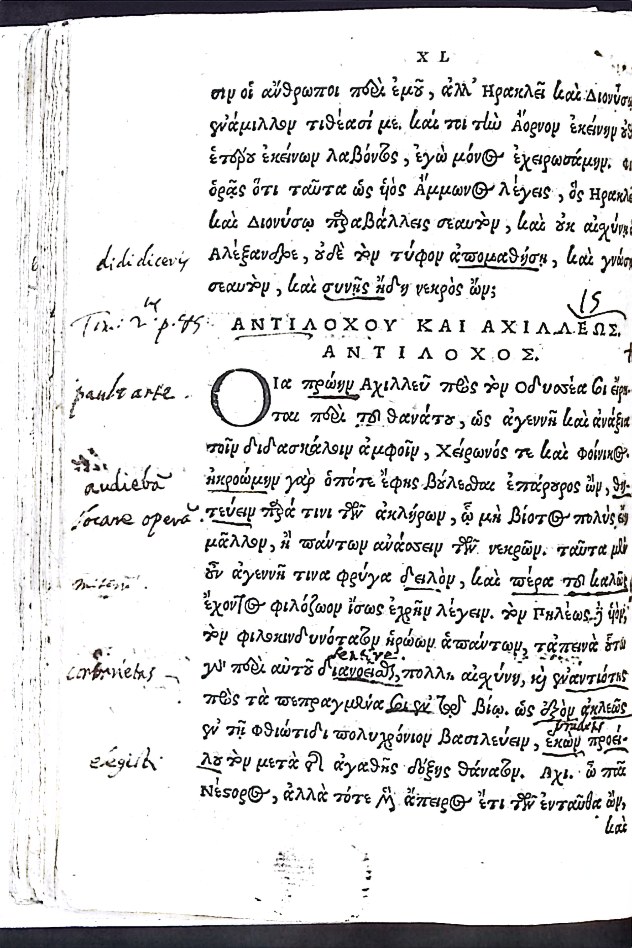 X L
σιν οἱ ἄνθρωποι περὶ ἐμοῦ, ἀλλ' Ηρακλεῖ καὶ Διονύσῳ
ἐνάμιλλον τιθέασί με. καί τοι τὴν Ἄορνον ἐκείνην
ἑτέρου ἐκείνων λαβόντος, ἐγὼ μόνος ἐχειρωσάμην.
ὁρᾷς ὅτι ταῦτα ὡς ὑὸς Ἄμμωνος λέγεις, ὃς Ηρακλεῖ
καὶ Διονύσῳ παραβάλλεις σεαυτὸν, καὶ οὐκ αἰσχύνῃ
didiceris Αλέξανδρε, οὐδὲ τὸν τύφον ἀπομαθήσῃ, καὶ γνώσῃ
σεαυτὸν, καὶ συνῆς ἤδη νεκρὸς ὤν;
15
ΑΝΤΙΛΟΧΟΥ ΚΑΙ ΑΧΙΛΛΕΩΣ.
ΑΝΤΙΛΟΧΟΣ.
paulo ante. ΟΙα πρώην Αχιλλεῦ πρὸς τὸν Οδυσσέα σοι εἴρη-
ται περὶ τοῦ θανάτου, ὡς ἀγεννῆ καὶ ἀνάξια
τοῖν διδασκάλοιν ἀμφοῖν, Χείρωνός τε καὶ Φοίνικος.
audieba ἠκροώμην γὰρ ὁπότε ἔφης βούλεσθαι ἐπάρουρος ὢν, θη-
locare operā. τεύειν παρά τινι τῶν ἀκλήρων, ᾧ μὴ βίοτος πολὺς εἴη
μᾶλλον, ἢ πάντων ἀνάσσειν τῶν νεκρῶν. ταῦτα μὲν
οὖν ἀγεννῆ τινα φρύγα δειλὸν, καὶ πέρα τοῦ καλῶς
ἔχοντος φιλόζωον ἴσως ἐχρῆν λέγειν. τὸν Πηλέως δὲ ὑὸν,
τὸν φιλοκινδυνότατον ἡρώων ἁπάντων, ταπεινὰ οὕτω
contrarietas ἐν περὶ αὐτοῦ διανοεῖσθαι, πολλὴ αἰσχύνη, καὶ ἐναντιότης
πρὸς τὰ πεπραγμένα σοι ἐν τῷ βίῳ. ὡς ἐξὸν ἀκλεῶς
ἐν τῇ Φθιώτιδι πολυχρόνιον βασιλεύειν, ἑκὼν προεί-
elegisti λου τὸν μετὰ τῆς ἀγαθῆς δόξης θάνατον. Αχι. ὦ παῖ
Νέστορος, ἀλλὰ τότε μὲν ἄπειρος ἔτι τῶν ἐνταῦθα ὢν,
καὶ